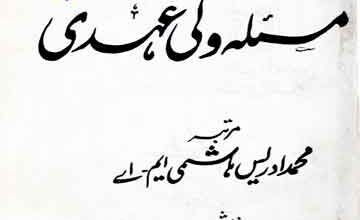 مسئلہ ولی عہدی
مرتبہ
محمد ادریس ہاشمی ایم-اے